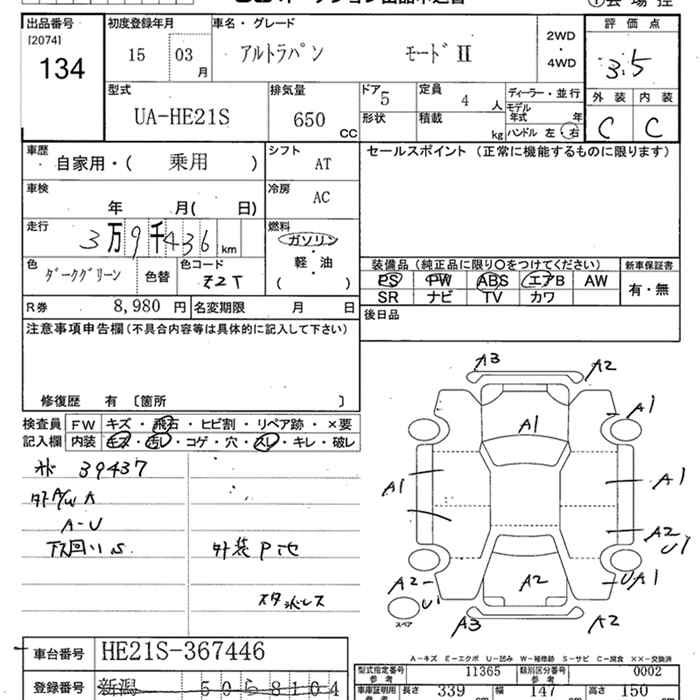 出品番号 初度登録年月 車名・グレード 2WD・4WD 評価点
[2074]
134
15 03 月
アルトラパン モードⅡ
3.5
外装 内装
C C
型式 排気量 ドア 定員 ディーラー・並行
UA-HE21S 650 CC 5 4 人
モデル年式 年
形状 積載 kg ハンドル 左・右
車歴 シフト セールスポイント (正常に機能するものに限ります)
自家用・( 乗用 ) AT
車検 冷房
年 月( 日) AC
走行 燃料
3万9千436 km ガソリン
軽・油
( )
色 色替 色コード
ダークグリーン Z2T
装備品 (純正品に限り○をつけてください) 新車保証書
PS PW ABS エアB AW 有・無
SR ナビ TV カワ
R券 8,980 円 名変期限 月 日
後日品
注意事項申告欄 (不具合内容等は具体的に記入して下さい)
修復歴 有 〔箇所 〕
検査員 FW キズ・飛石・ヒビ割・リペア跡・×要
記入欄 内装 キズ・汚レ・コゲ・穴・スレ・キレ・破レ
39437
A-U
下回り S
外装 P
スタッドレス
A3 A2
A1 A1
A1 A1
A2 U1
A2 A2 U1 UA1
スペア
A3 A2
A-キズ E-エクボ U-凹み W-補修跡 S-サビ C-腐食 ××-交換済
車台番号 HE21S-367446
型式指定番号 参考 11365 類別区分番号 参考 0002
登録番号 新潟 50 58104
車庫証明用 参考 長さ 339 幅 147 高さ 150